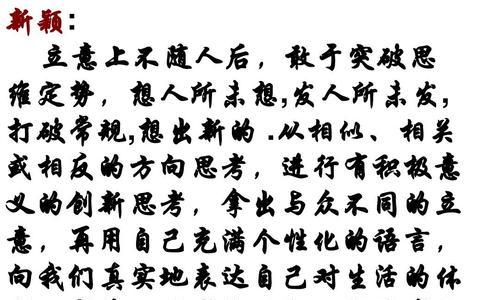 新颖:
立意上不随人后，敢于突破思
维定势，想人所未想,发人所未发,
打破常规,想出新的.从相似、相关
或相反的方向思考，进行有积极意
义的创新思考，拿出与众不同的立
意，再用自己充满个性化的语言，
向我们真实地表达自己对生活的体